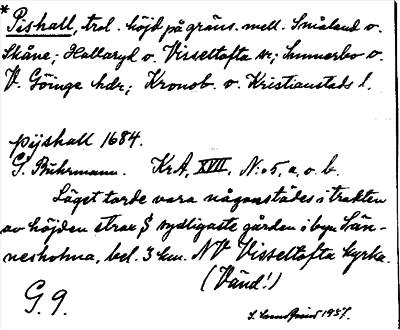 * Pishall, trol. höjd på gräns. mell. Småland o.
Skåne; Hallaryd o. Visseltofta sr; Sunnerbo o.
V. Göinge hdr; Kronob. o. Kristianstads l.
pijshall 1684.
G. Buhrmann. KrA, XVII, N:o 5, a, o. b.
Läget torde vara någonstädes i trakten
av höjden strax S sydligaste gården i byn Sän-
nesholma, bel. 3 km. NV Visseltofta kyrka.
(Vänd!)
G. 9.
1937.